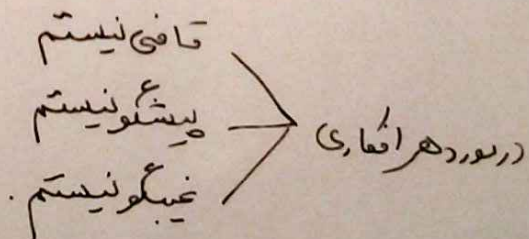 قاضی نیستم
پیشگو نیستم
غیبگو نیستم.
در مورد هر افکاری